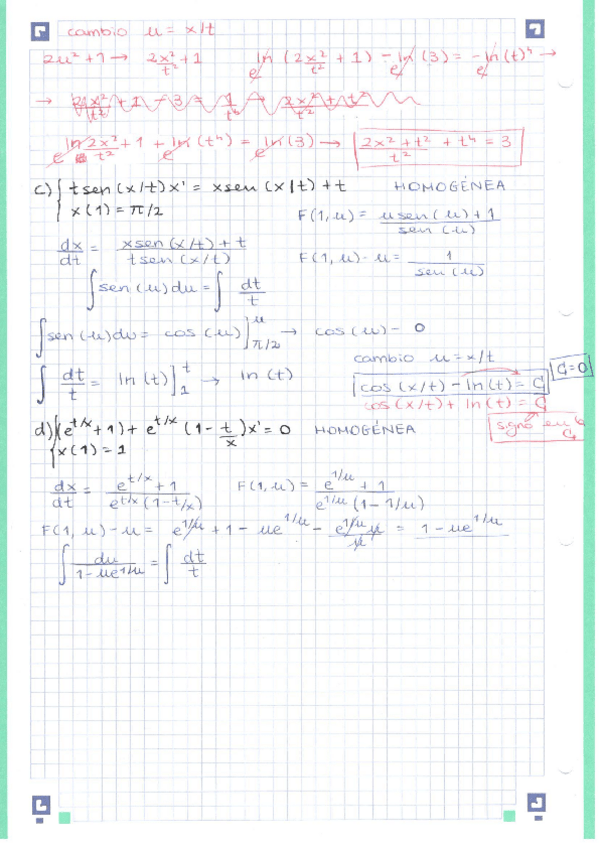 cambio u = x/t
2u² + 1 → 2x²/t² + 1   ln (2x²/t² + 1) - ln (3) = - ln (t)⁴ →
→ 2x²/t² + 1 - 3 = 1/t⁴ → 2x²/t² + t²
ln 2x²/t² + 1 + ln (t⁴) = ln (3) → (2x² + t²)/t² + t⁴ = 3
c) { t sen (x/t) x' = x sen (x/t) + t   HOMOGÉNEA
x(1) = π/2   F(1, u) = (u sen (u) + 1)/sen (u)
dx/dt = (x sen (x/t) + t)/(t sen (x/t))   F(1, u) - u = 1/sen (u)
∫ sen (u) du = ∫ dt/t
∫ sen (u) du = cos (u) ]^u_π/2 → cos (u) - 0
cambio u = x/t
∫ dt/t = ln (t) ]^t_1 → ln (t)   cos (x/t) - ln (t) = C   C = 0
cos (x/t) + ln (t) = C
signo en C
d) { (e^t/x + 1) + e^t/x (1 - t/x) x' = 0   HOMOGÉNEA
x(1) = 1
dx/dt = (e^t/x + 1)/(e^t/x (1 - t/x))   F(1, u) = (e^1/u + 1)/(e^1/u (1 - 1/u))
F(1, u) - u = e^1/u + 1 - u e^1/u - (e^1/u u)/u = 1 - u e^1/u
∫ du/(1 - u e^1/u) = ∫ dt/t